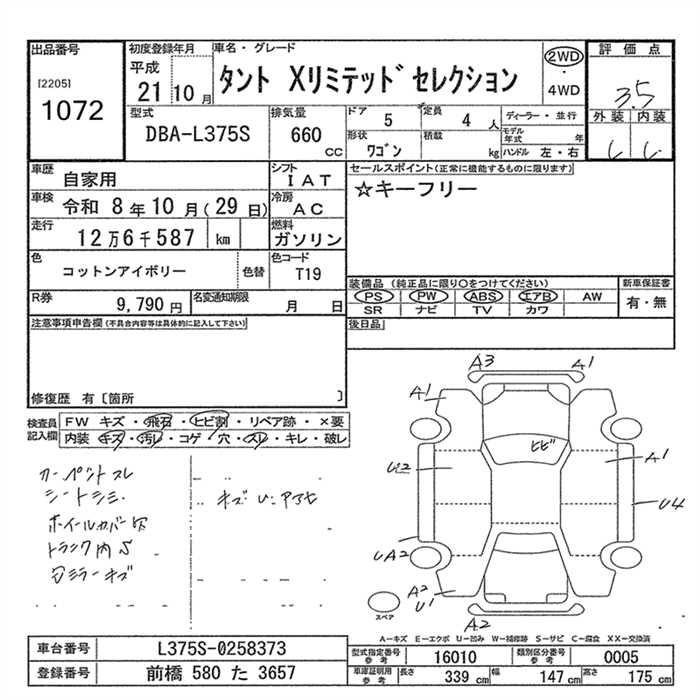 出品番号
[2205]
1072
初度登録年月
平成
21 10月
車名・グレード
タント Xリミテッド セレクション
2WD
・
4WD
評価点
3.5
外装 内装
型式
DBA-L375S
排気量
660
CC
ドア 5
定員 4 人
形状 ワゴン
積載 kg
ディーラー・並行
モデル年式 年
ハンドル 左・右
車歴 自家用
シフト IAT
車検 令和 8年10月(29日)
冷房 AC
走行 12万6千587 km
燃料 ガソリン
色 コットンアイボリー
色替
色コード T19
R券 9,790円
名変通知期限 月 日
セールスポイント(正常に機能するものに限ります)
☆キーフリー
装備品 (純正品に限り○をつけてください)
PS PW ABS エアB AW
SR ナビ TV カワ
新車保証書
有・無
後日品
注意事項申告欄(不具合内容等は具体的に記入して下さい)
修復歴 有〔箇所 〕
検査員
記入欄
FW キズ ・ 飛石 ・ ヒビ割 ・ リペア跡 ・ ×要
内装 キズ ・ 汚レ ・ コゲ ・ 穴 ・ スレ ・ キレ ・ 破レ
カーペットスレ
シートシミ
ホイールカバーキズ
トランク内S
キズ U
A3
A1
A1
ヒビ
U2
A1
U4
UA2
A2
U1
A2
スペア
A-キズ E-エクボ U-凹み W-補修跡 S-サビ C-腐食 XX-交換済
車台番号 L375S-0258373
登録番号 前橋 580 た 3657
型式指定番号
参考
16010
類別区分番号
参考
0005
車庫証明用
参考
長さ 339 cm
幅 147 cm
高さ 175 cm